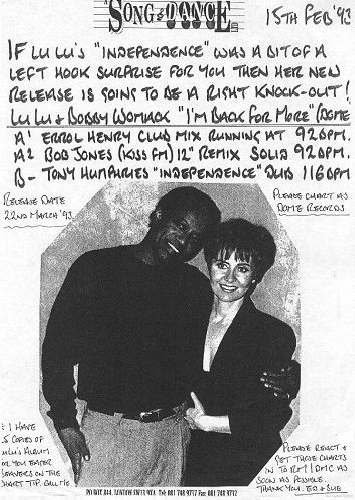 SONG & DANCE
15TH FEB '93
IF LULU'S "INDEPENDENCE" WAS A BIT OF A
LEFT HOOK SURPRISE FOR YOU THEN HER NEW
RELEASE IS GOING TO BE A RIGHT KNOCK-OUT!
LULU & BOBBY WOMACK "I'M BACK FOR MORE" (DOME
A1 ERROL HENRY CLUB MIX RUNNING AT 92BPM.
A2 BOB JONES (KISS FM) 12" REMIX SOLID 92BPM.
B- TONY HUMPHRIES "INDEPENDENCE" DUB 116BPM
RELEASE DATE
22ND MARCH '93.
PLEASE CHART AS
DOME RECORDS
I HAVE
5 COPIES OF
LULU'S ALBUM
FOR YOU EAGER
BEAVERS ON THE
CHART TIP. CALL ME
PLEASE REACT &
GET THOSE CHARTS
IN TO RM / DMC AS
SOON AS POSSIBLE.
THANK YOU. ED & SUE
LONDON